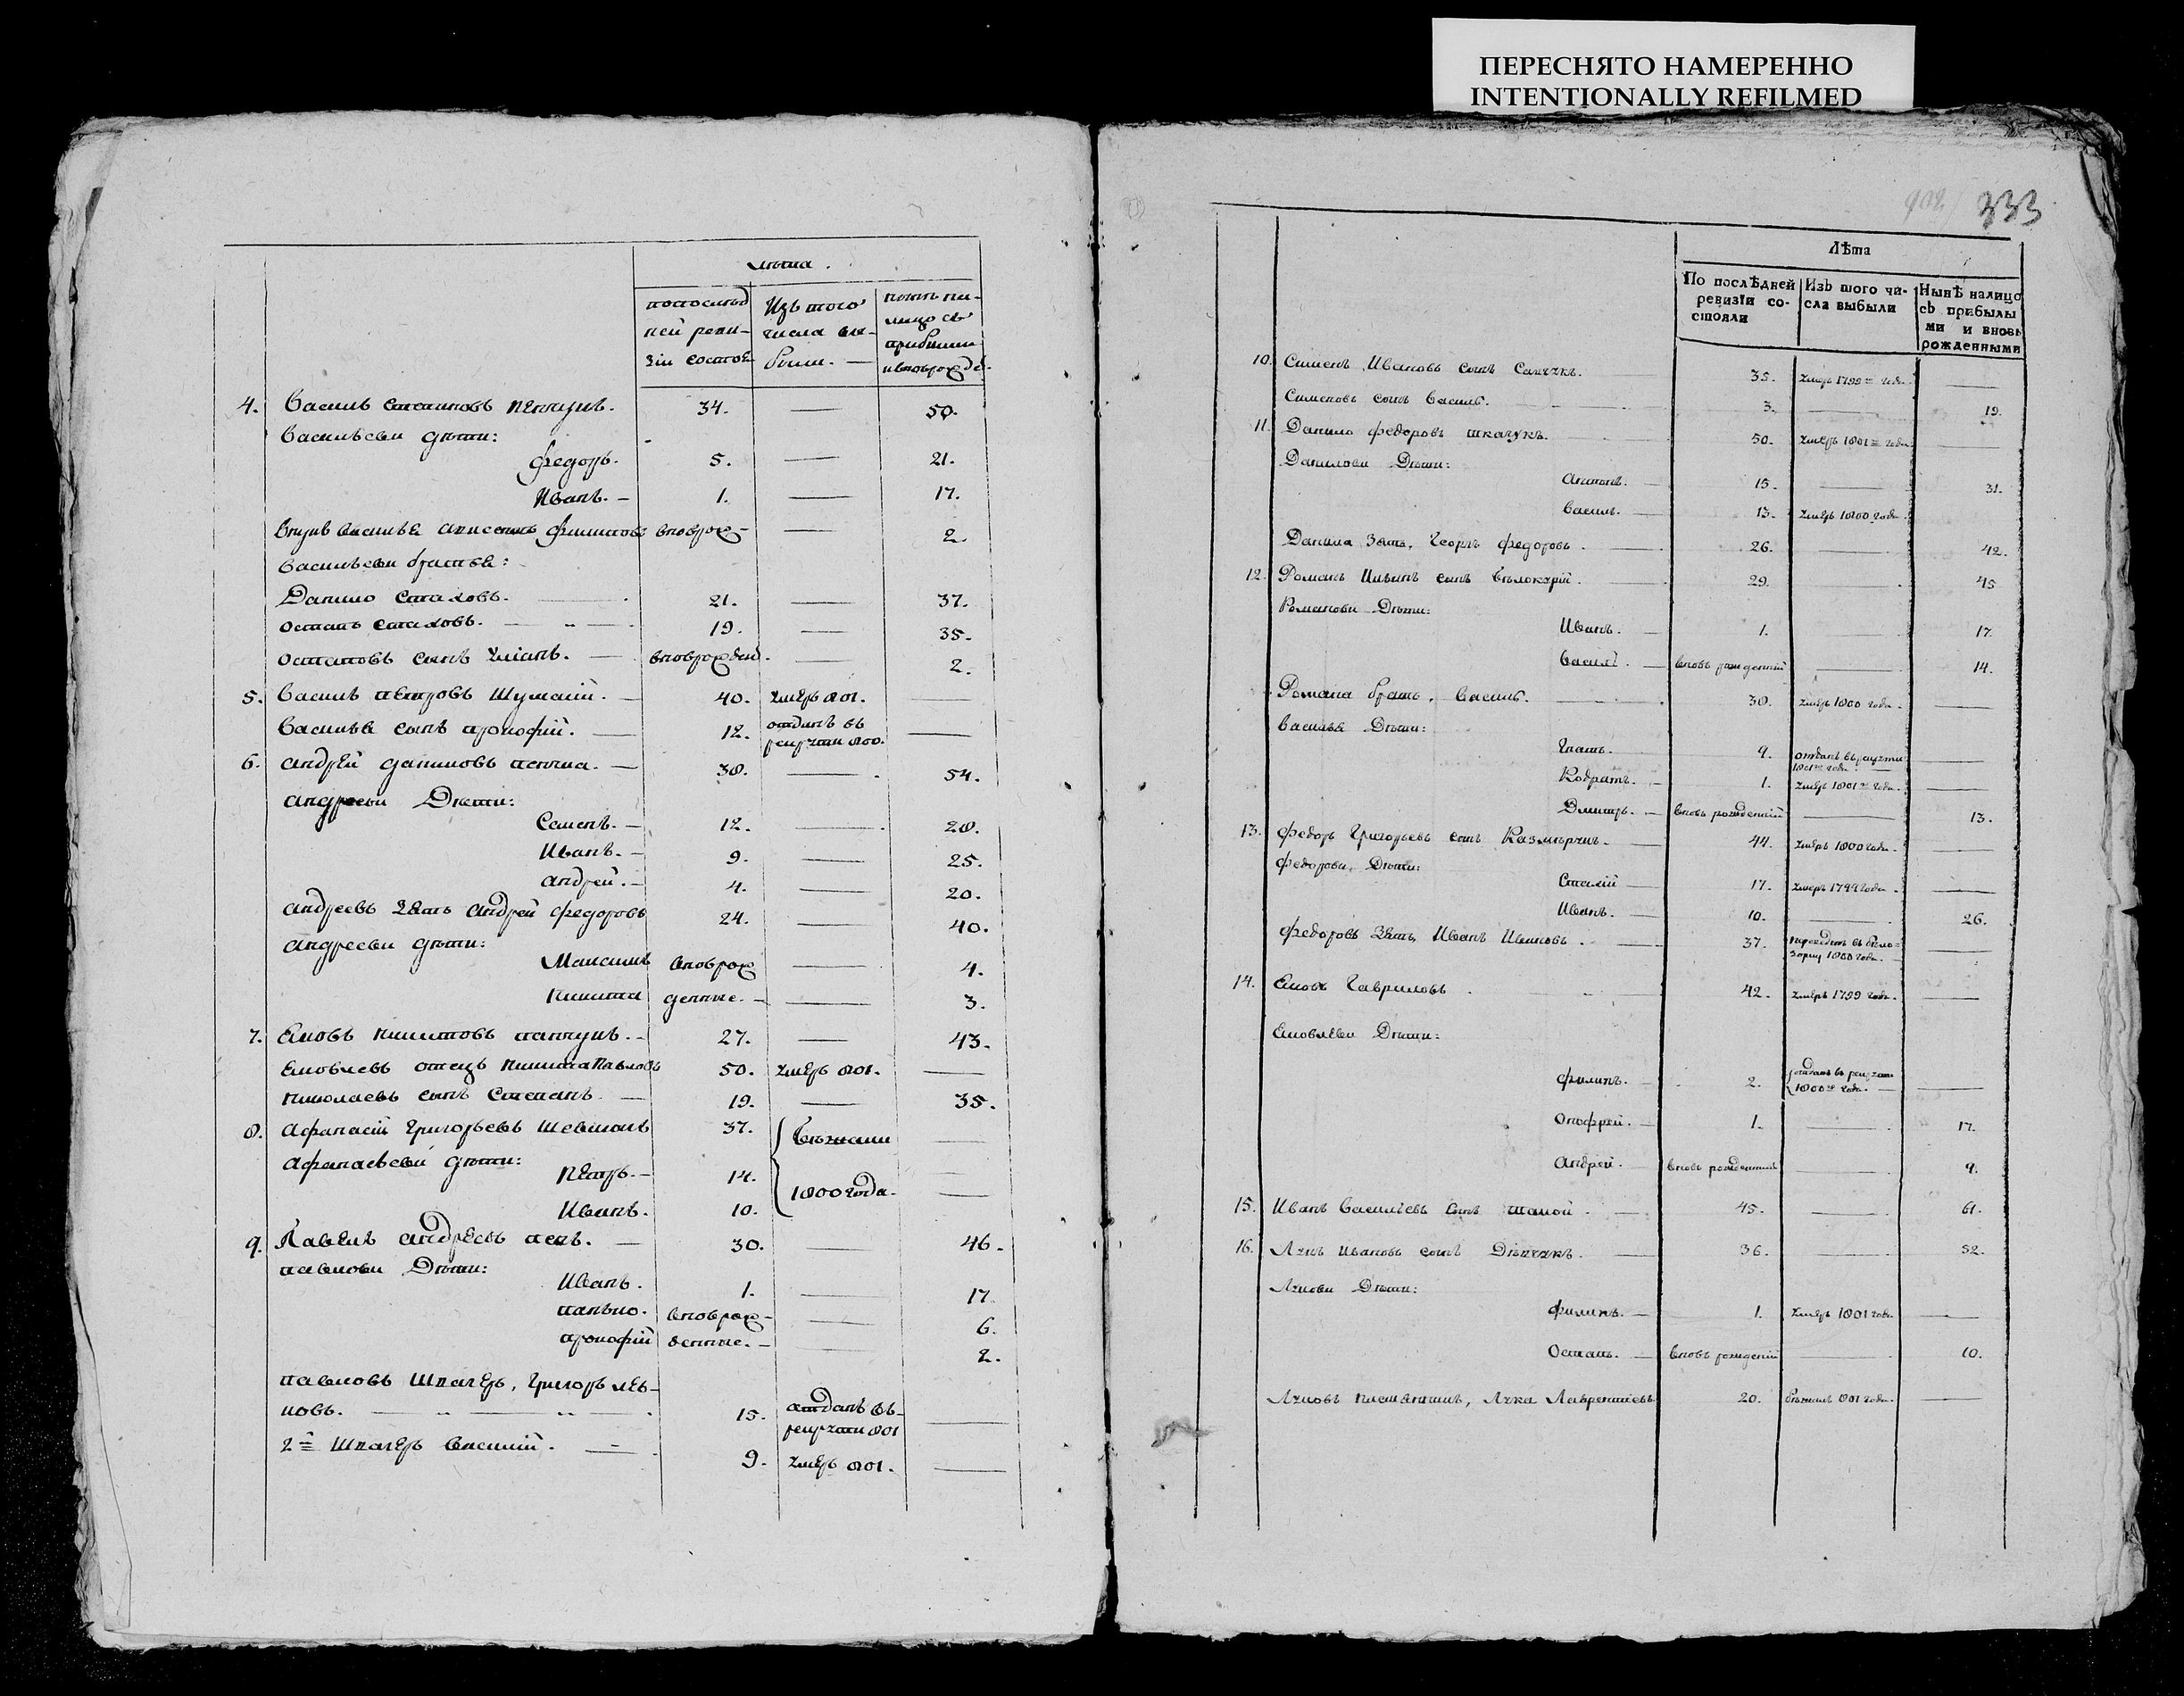 ПЕРЕСНЯТО НАМЕРЕННО
INTENTIONALLY REFILMED
333
лѣта.
попослѣд ней реви- зіи состоя
Изъ того числа вы- были. —
нынѣ на- лицо съ прибыли ивноврожде.
4. Василь 34. — 50.
Васильеви дѣти:
Федоръ. 5. — 21.
Иванъ. — 1. — 17.
Внукъ Василья вноврож- — 2.
Васильеви братья:
Данило 21. — 37.
Остапъ 19. — 35.
Остаповъ сынъ вноврожден. — 2.
5. Василь Петровъ Шумскій. — 40. умеръ 801. —
Васильев сынъ Прокофій. — 12. отданъ въ рекруты 800. —
6. Андрей Даниловъ — 38. — 54.
Андрееви Дѣти:
Семенъ. — 12. — 28.
Иванъ. — 9. — 25.
Андрей. — 4. — 20.
Андреевъ Зять Андрей Федоровъ 24. — 40.
Андрееви дѣти:
Максимъ вноврож — 4.
Никита денные. — — 3.
7. Яковъ Никитовъ — 27. — 43.
Яковлевъ отецъ Никита Павловъ 50. умеръ 801. —
Николаевъ сынъ Степанъ. — 19. — 35.
8. Афанасій Григорьевъ 37. бѣжали —
Афанасьевы дѣти:
Петръ. — 14. —
1800 года. —
Иванъ. 10.
9. Павелъ Андреевъ — 30. — 46.
Павлови Дѣти:
Иванъ. 1. — 17.
вноврож- — 6.
Прокофій денные. — — 2.
Павловъ Швагеръ, Григоръ
ковъ. — 15. отданъ въ рекруты 801 —
2й Швагеръ Василій. — 9. умеръ 801. —
Лѣта
По послѣдней ревизіи со- стояли
Изъ того чи- сла выбыли
Нынѣ налицо съ прибылы ми и вновь рожденными
10. Сименъ Ивановъ сынъ 35. умеръ 1799го года. —
Сименовъ сынъ Василь. 3. — 19.
11. Данило Федоровъ ткачукъ. 50. умеръ 1801го года —
Данилови Дѣти:
Антонъ. — 15. — 31.
Василь. — 13. умеръ 1800 года. —
Данила Зять, Георгъ Федоровъ. — 26. — 42.
12. Романъ Ильинъ сынъ Бѣлокурій. — 29. — 45
Романови Дѣти:
Иванъ. — 1. — 17.
Василь. — вновь рожденній — 14.
Романа братъ, Василь. — 30. умеръ 1800 года. —
Васильев Дѣти:
Гнатъ. 9. отданъ въ рекруты 1801го года. —
Кодратъ. — 1. умеръ 1801го года. —
Дмитръ. — вновь рожденній — 13.
13. Федоръ Григорьевъ сынъ Казмѣрчукъ. — 44. умеръ 1800 года. —
Федорови Дѣти:
17. умеръ 1799 года. —
Иванъ. — 10. — 26.
Федоровъ Зять, Иванъ Ивановъ. — 37. 1800 года. —
14. Яковъ Гавриловъ. 42. умеръ 1799 года. —
Яковлеви Дѣти:
Филипъ. — 2. отданъ въ рекруты 1800го года. —
Онофрей. — 1. — 17.
Андрей. — вновь рожденний — 9.
15. Иванъ Васильевъ сынъ — 45. — 61.
16. Лукъ Ивановъ сынъ Дьячукъ. — 36. — 52.
Лукови Дѣти:
Филипъ. — 1. умеръ 1801 года. —
Остапъ. — вновь рожденій — 10.
Луковъ племянникъ, Лука Лаврентиевъ 20. бѣжалъ 801 года. —